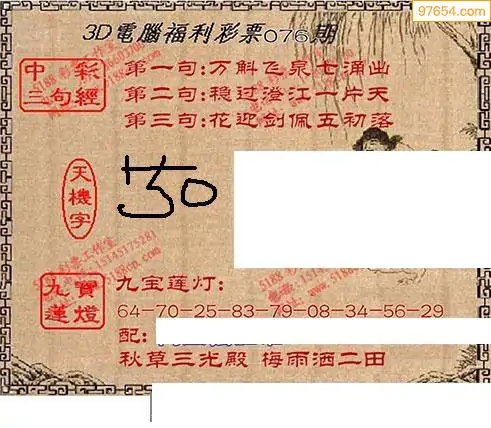 97654.com
3D電腦福利彩票076期
中彩
三句經
第一句:万斛飞泉七涌出
第二句:稳过澄江一片天
第三句:花迎剑佩五初落
天機字
九寶
蓮燈
九宝莲灯:
64-70-25-83-79-08-34-56-29
配:
秋草三光殿 梅雨洒二田